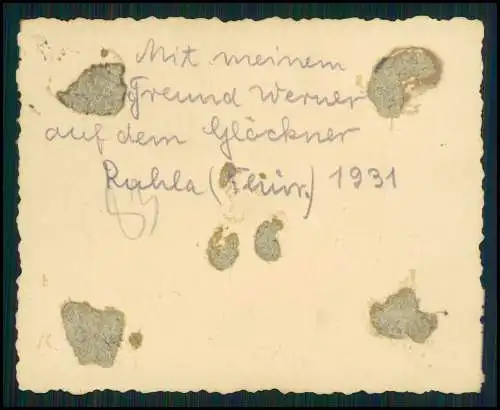 Mit meinem
Freund Werner
auf dem Glöckner
Ruhla (Thür.) 1931